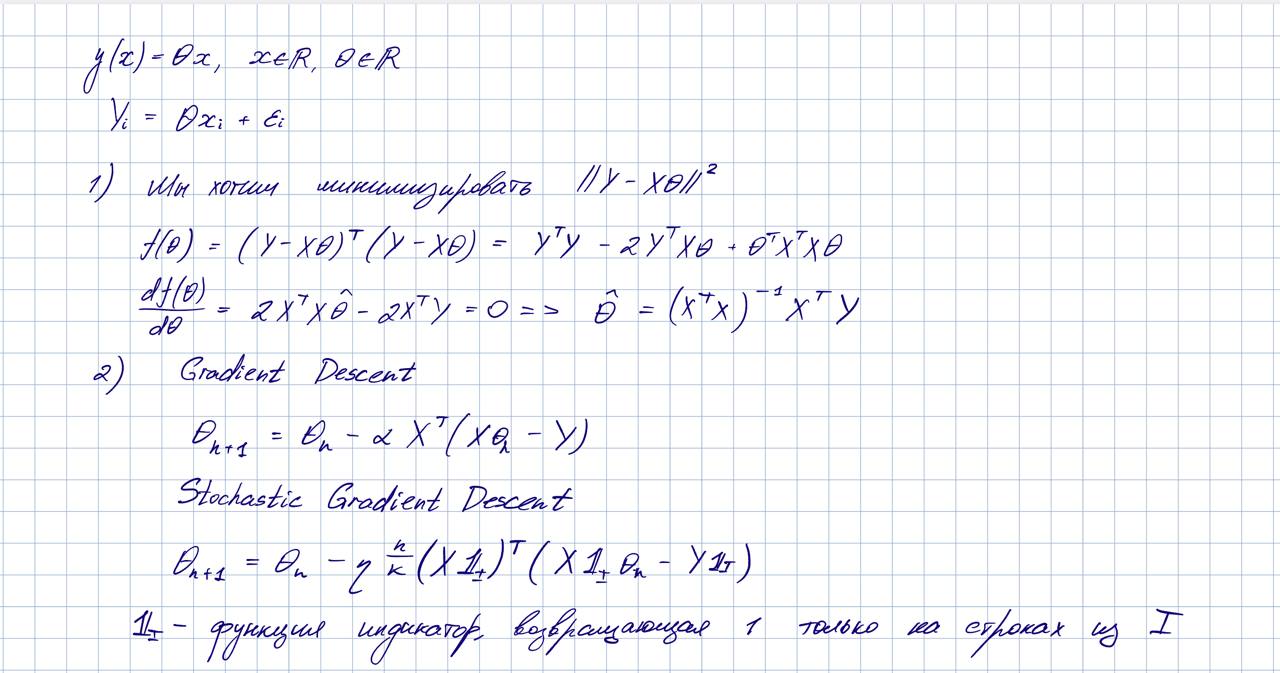 y(x) = θx, x∈ℝ, θ∈ℝ
Yᵢ = θxᵢ + εᵢ
1) Мы хотим минимизировать ||Y - Xθ||²
f(θ) = (Y - Xθ)ᵀ(Y - Xθ) = YᵀY - 2YᵀXθ + θᵀXᵀXθ
df(θ)/dθ = 2XᵀXθ̂ - 2XᵀY = 0 => θ̂ = (XᵀX)⁻¹XᵀY
2) Gradient Descent
θₙ₊₁ = θₙ - α Xᵀ(Xθₙ - Y)
Stochastic Gradient Descent
θₙ₊₁ = θₙ - η n/k (X𝟙_I)ᵀ(X𝟙_I θₙ - Y𝟙_I)
𝟙_I - функция индикатор, возвращающая 1 только на строках из I